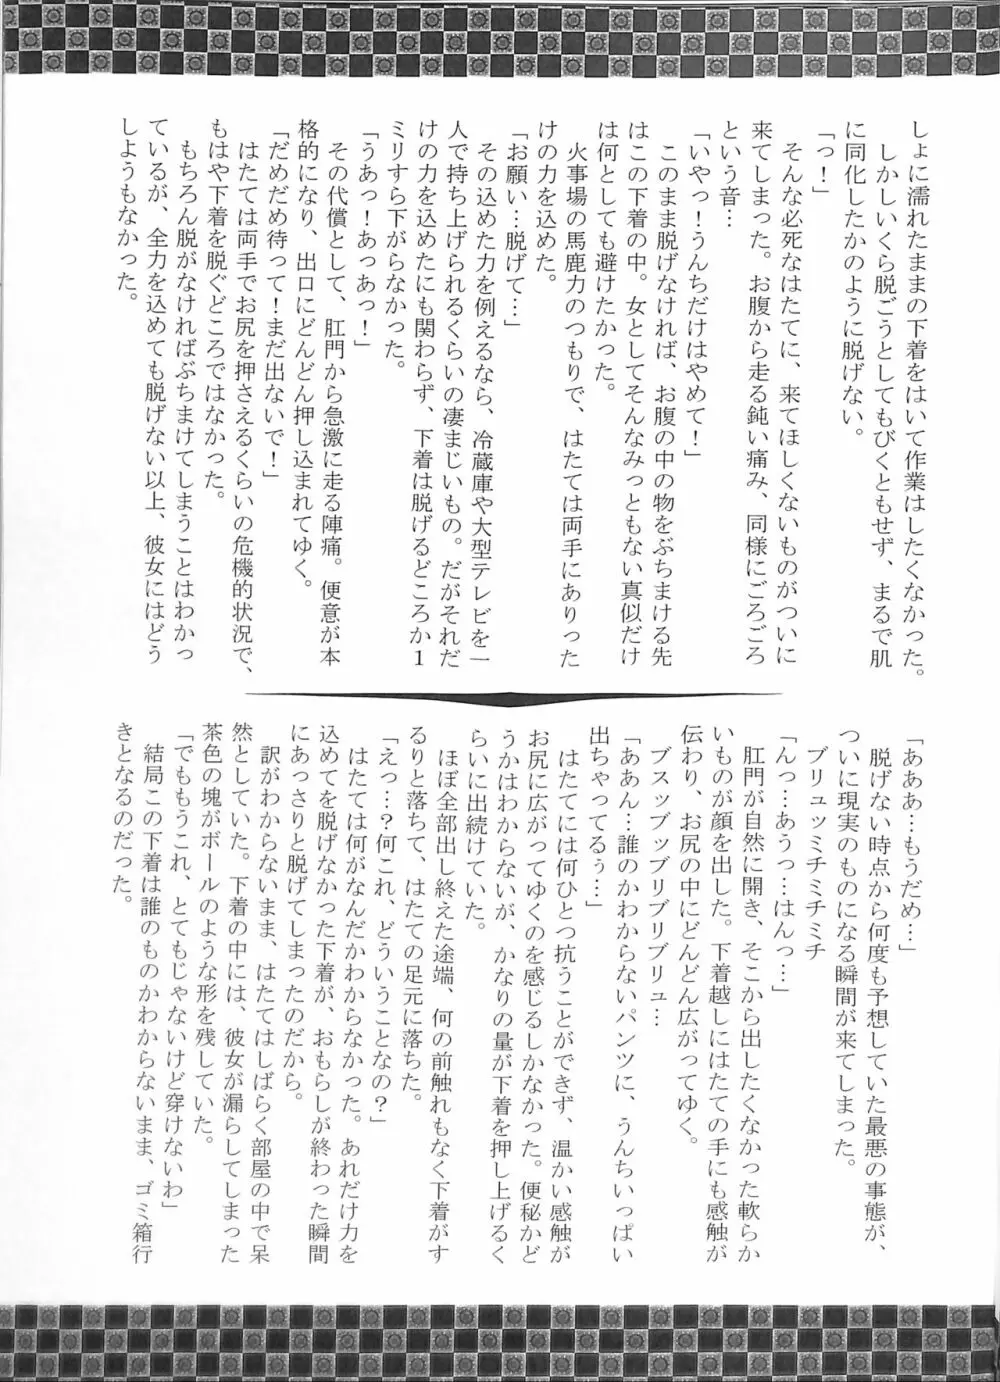 しょに濡れたままの下着をはいて作業はしたくなかった。
しかしいくら脱ごうとしてもびくともせず、まるで肌
に同化したかのように脱げない。
「っ！」
そんな必死なはたてに、来てほしくないものがついに
来てしまった。お腹から走る鈍い痛み、同様にごろごろ
という音…
「いやっ！うんちだけはやめて！」
このまま脱げなければ、お腹の中の物をぶちまける先
はこの下着の中。女としてそんなみっともない真似だけ
は何としても避けたかった。
火事場の馬鹿力のつもりで、はたては両手にありった
けの力を込めた。
「お願い…脱げて…」
その込めた力を例えるなら、冷蔵庫や大型テレビを一
人で持ち上げられるくらいの凄まじいもの。だがそれだ
けの力を込めたにも関わらず、下着は脱げるどころか１
ミリすら下がらなかった。
「うあっ！あっあっ！」
その代償として、肛門から急激に走る陣痛。便意が本
格的になり、出口にどんどん押し込まれてゆく。
「だめだめ待って！まだ出ないで！」
はたては両手でお尻を押さえるくらいの危機的状況で、
もはや下着を脱ぐどころではなかった。
もちろん脱がなければぶちまけてしまうことはわかっ
ているが、全力を込めても脱げない以上、彼女にはどう
しようもなかった。
「あああ…もうだめ…」
脱げない時点から何度も予想していた最悪の事態が、
ついに現実のものになる瞬間が来てしまった。
ブリュッミチミチミチ
「んっ…あうっ…はんっ…」
肛門が自然に開き、そこから出したくなかった軟らか
いものが顔を出した。下着越しにはたての手にも感触が
伝わり、お尻の中にどんどん広がってゆく。
ブスッブッブリブリブリュ…
「ああん…誰のかわからないパンツに、うんちいっぱい
出ちゃってるぅ…」
はたてには何ひとつ抗うことができず、温かい感触が
お尻に広がってゆくのを感じるしかなかった。便秘かど
うかはわからないが、かなりの量が下着を押し上げるく
らいに出続けていた。
ほぼ全部出し終えた途端、何の前触れもなく下着がす
るりと落ちて、はたての足元に落ちた。
「えっ…？何これ、どういうことなの？」
はたては何がなんだかわからなかった。あれだけ力を
込めてを脱げなかった下着が、おもらしが終わった瞬間
にあっさりと脱げてしまったのだから。
訳がわからないまま、はたてはしばらく部屋の中で呆
然としていた。下着の中には、彼女が漏らしてしまった
茶色の塊がボールのような形を残していた。
「でももうこれ、とてもじゃないけど穿けないわ」
結局この下着は誰のものかわからないまま、ゴミ箱行
きとなるのだった。